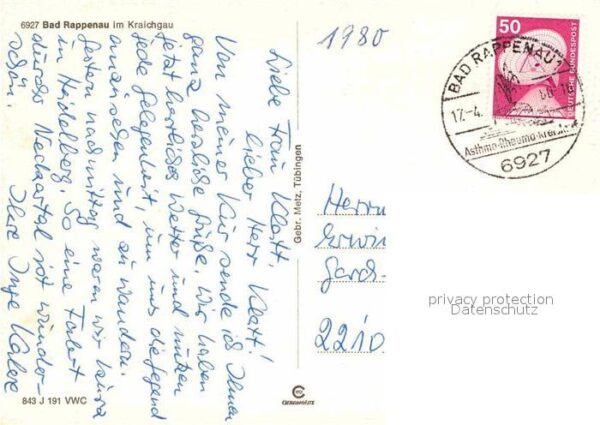 6927 Bad Rappenau im Kraichgau
Liebe Frau Klatt,
lieber Herr Klatt!
Von meiner Kur sende ich Ihnen
ganz herzliche Grüße. Wir haben
jetzt herrliches Wetter und nutzen
jede Gelegenheit, um uns die Gegend
anzusehen und zu wandern.
Gestern nachmittag waren wir kurz
in Heidelberg. So eine Fahrt
durchs Neckartal ist wunder-
schön. Ihre Inge
843 J 191 VWC
Gebr. Metz, Tübingen
1980
50
DEUTSCHE BUNDESPOST
BAD RAPPENAU
17.-4.
Asthma-Rheuma-Kreisl
6927
Herrn
Erwin
2210
privacy protection
Datenschutz